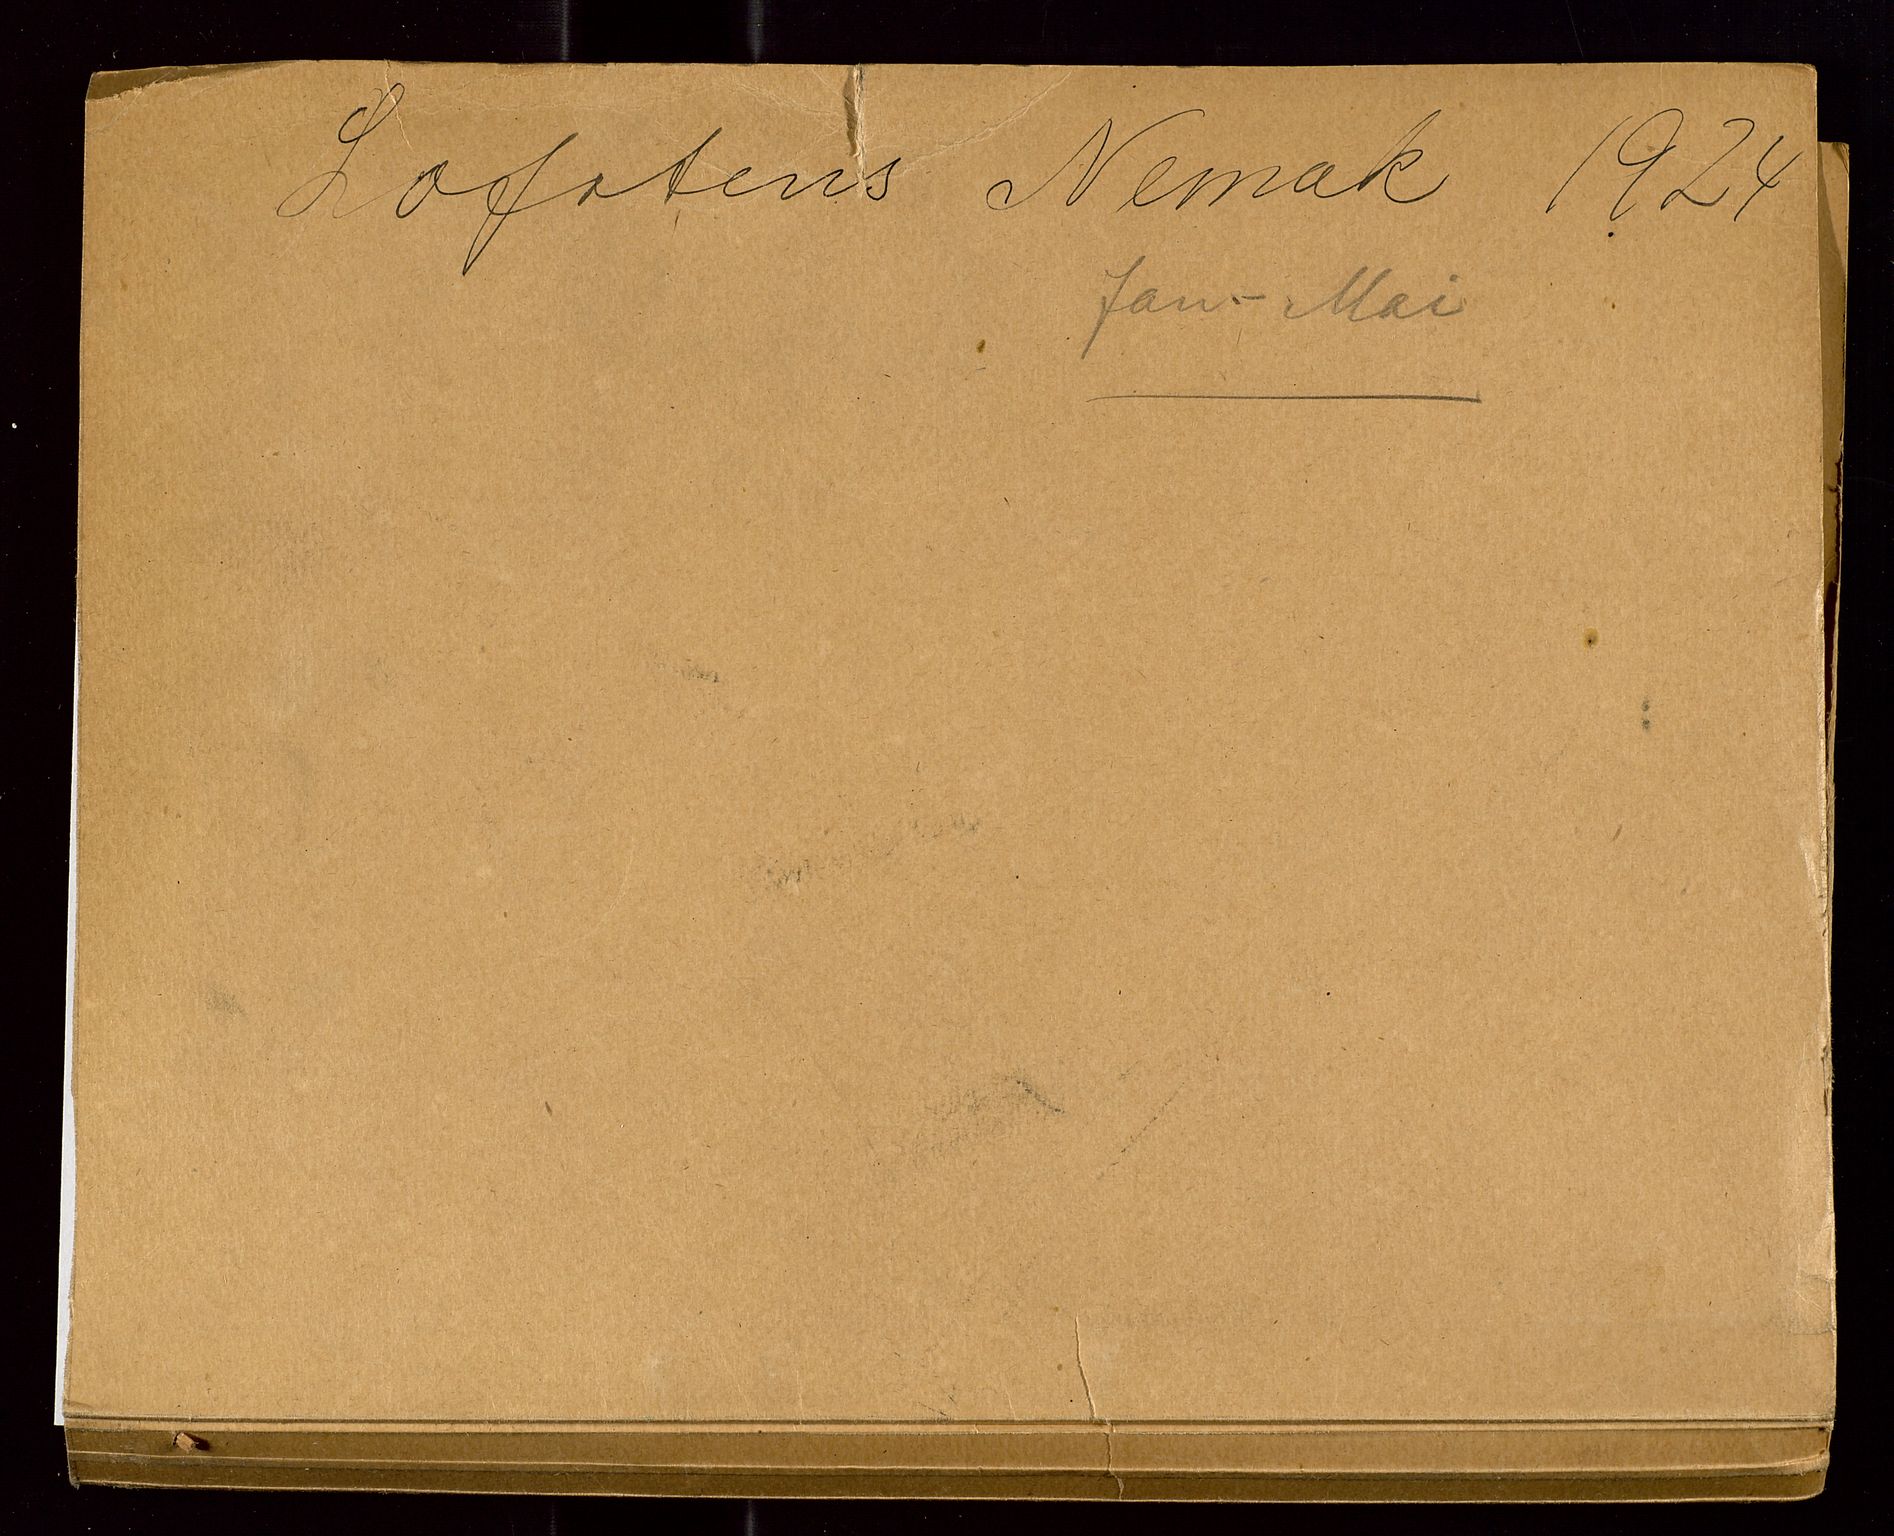 Lofotens Nemak 1924
Jan - Mai